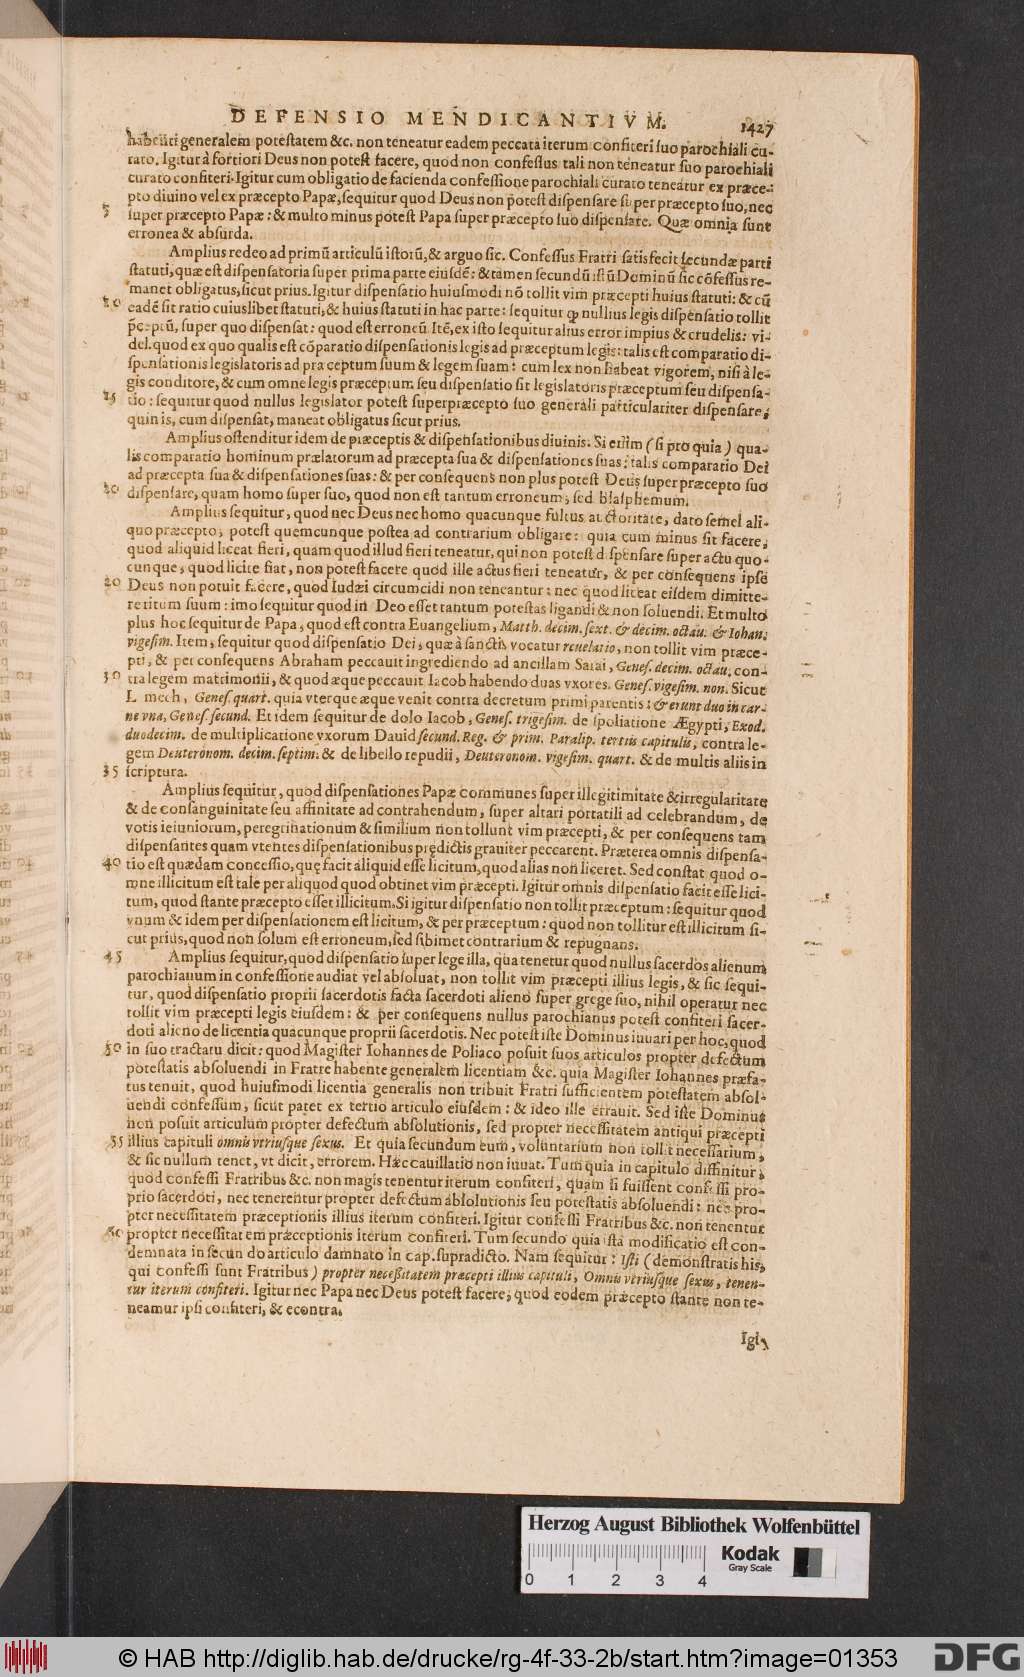 DEFENSIO MENDICANTIVM. 1427
habenti generalem potestatem &c. non teneatur eadem peccata iterum confiteri suo parochiali cu-
rato. Igitur à fortiori Deus non potest facere, quod non confessus tali non teneatur suo parochiali
curato confiteri. Igitur cum obligatio de facienda confessione parochiali curato teneatur ex præce-
pto diuino vel ex præcepto Papæ, sequitur quod Deus non potest dispensare super præcepto suo, nec
5 super præcepto Papæ: & multo minus potest Papa super præcepto suo dispensare. Quæ omnia sunt
erronea & absurda.
Amplius redeo ad primũ articulũ istorũ, & arguo sic. Confessus Fratri satisfecit secundæ parti
statuti, quæ est dispensatoria super prima parte eiusdẽ: & tamen secundũ istũ Dominũ sic cõfessus re-
manet obligatus, sicut prius. Igitur dispensatio huiusmodi nõ tollit vim præcepti huius statuti: & cũ
10 eadẽ sit ratio cuiuslibet statuti, & huius statuti in hac parte: sequitur ꝙ nullius legis dispensatio tollit
p̄ceptũ, super quo dispensat: quod est erroneũ. Itẽ, ex isto sequitur alius error impius & crudelis: vi-
del. quod ex quo qualis est cõparatio dispensationis legis ad præceptum legis: talis est comparatio di-
spensationis legislatoris ad præceptum suum & legem suam: cum lex non habeat vigorem, nisi à le-
gis conditore, & cum omne legis præceptum seu dispensatio sit legislatoris præceptum seu dispensa-
15 tio: sequitur quod nullus legislator potest super præcepto suo generali particulariter dispensare,
quin is, cum dispensat, maneat obligatus sicut prius.
Amplius ostenditur idem de præceptis & dispensationibus diuinis. Si enim (si pro quia) qua-
lis comparatio hominum prælatorum ad præcepta sua & dispensationes suas: talis comparatio Dei
ad præcepta sua & dispensationes suas: & per consequens non plus potest Deus super præcepto suo
20 dispensare, quam homo super suo, quod non est tantum erroneum, sed blasphemum.
Amplius sequitur, quod nec Deus nec homo quacunque fultus auctoritate, dato semel ali-
quo præcepto, potest quemcunque postea ad contrarium obligare: quia cum minus sit facere,
quod aliquid liceat fieri, quam quod illud fieri teneatur, qui non potest dispensare super actu quo-
cunque, quod licite fiat, non potest facere quod ille actus fieri teneatur, & per consequens ipse
20 Deus non potuit facere, quod Iudæi circumcidi non teneantur: nec quod liceat eisdem dimitte-
re ritum suum: imo sequitur quod in Deo esset tantum potestas ligandi & non soluendi. Et multo
plus hoc sequitur de Papa, quod est contra Euangelium, Matth. decim. sext. & decim. octau. & Iohan.
vigesim. Item, sequitur quod dispensatio Dei, quæ à sanctis vocatur reuelatio, non tollit vim præce-
pti, & per consequens Abraham peccauit ingrediendo ad ancillam Sarai, Genes. decim. octau. con-
30 tra legem matrimonii, & quod æque peccauit Iacob habendo duas vxores. Genes. vigesim. non. Sicut
Lamech, Genes. quart. quia vterque æque venit contra decretum primi parentis: & erunt duo in car-
ne vna, Genes. secund. Et idem sequitur de dolo Iacob, Genes. trigesim. de spoliatione Ægypti, Exod.
duodecim. de multiplicatione vxorum Dauid secund. Reg. & prim. Paralip. tertiis capitulis, contra le-
gem Deuteronom. decim. septim. & de libello repudii, Deuteronom. vigesim. quart. & de multis aliis in
35 scriptura.
Amplius sequitur, quod dispensationes Papæ communes super illegitimitate & irregularitate
& de consanguinitate seu affinitate ad contrahendum, super altari portatili ad celebrandum, de
votis ieiuniorum, peregrinationum & similium non tollunt vim præcepti, & per consequens tam
dispensantes quam vtentes dispensationibus prędictis grauiter peccarent. Præterea omnis dispensa-
40 tio est quædam concessio, quę facit aliquid esse licitum, quod alias non liceret. Sed constat quod o-
mne illicitum est tale per aliquod quod obtinet vim præcepti. Igitur omnis dispensatio facit esse lici-
tum, quod stante præcepto esset illicitum. Si igitur dispensatio non tollit præceptum: sequitur quod
vnum & idem per dispensationem est licitum, & per præceptum: quod non tollitur est illicitum si-
cut prius, quod non solum est erroneum, sed sibimet contrarium & repugnans.
45 Amplius sequitur, quod dispensatio super lege illa, qua tenetur quod nullus sacerdos alienum
parochianum in confessione audiat vel absoluat, non tollit vim præcepti illius legis, & sic sequi-
tur, quod dispensatio proprii sacerdotis facta sacerdoti alieno super grege suo, nihil operatur nec
tollit vim præcepti legis eiusdem: & per consequens nullus parochianus potest confiteri sacer-
doti alieno de licentia quacunque proprii sacerdotis. Nec potest iste Dominus iuuari per hoc, quod
50 in suo tractatu dicit: quod Magister Iohannes de Poliaco posuit suos articulos propter defectum
potestatis absoluendi in Fratre habente generalem licentiam &c. quia Magister Iohannes præfa-
tus tenuit, quod huiusmodi licentia generalis non tribuit Fratri sufficientem potestatem absol-
uendi confessum, sicut patet ex tertio articulo eiusdem: & ideo ille errauit. Sed iste Dominus
non posuit articulum propter defectum absolutionis, sed propter necessitatem antiqui præcepti
55 illius capituli omnis vtriusque sexus. Et quia secundum eum, voluntarium non tollit necessarium,
& sic nullum tenet, vt dicit, errorem. Hæc cauillatio non iuuat. Tum quia in capitulo diffinitur,
quod confessi Fratribus &c. non magis tenentur iterum confiteri, quam si fuissent confessi pro-
prio sacerdoti, nec tenerentur propter defectum absolutionis seu potestatis absoluendi: nec pro-
pter necessitatem præceptionis illius iterum confiteri. Igitur confessi Fratribus &c. non tenentur
60 propter necessitatem præceptionis iterum confiteri. Tum secundo quia ista modificatio est con-
demnata in secundo articulo damnato in cap. supradicto. Nam sequitur: Isti (demonstratis his,
qui confessi sunt Fratribus) propter necessitatem præcepti illius capituli, Omnis vtriusque sexus, tenen-
tur iterum confiteri. Igitur nec Papa nec Deus potest facere, quod eodem præcepto stante non te-
neamur ipsi confiteri, & econtra.
Igi-
Herzog August Bibliothek Wolfenbüttel
Kodak
Gray Scale
0 1 2 3 4
© HAB http://diglib.hab.de/drucke/rg-4f-33-2b/start.htm?image=01353
DFG